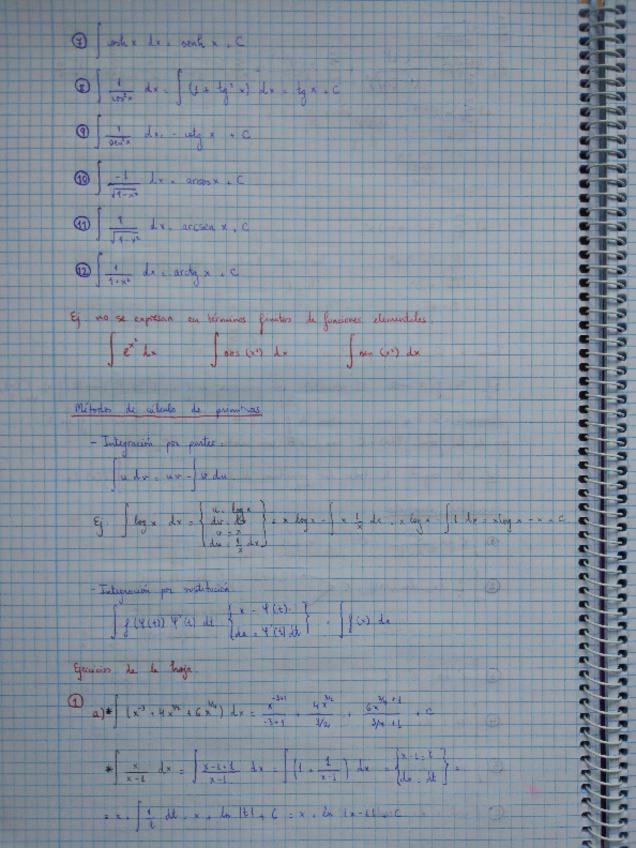 ⑦ ∫ cosh x dx = senh x + C
⑧ ∫ 1/cos²x dx = ∫ (1 + tg² x) dx = tg x + C
⑨ ∫ 1/sen²x dx = - cotg x + C
⑩ ∫ -1/√(1-x²) dx = arcos x + C
⑪ ∫ 1/√(1-x²) dx = arcsen x + C
⑫ ∫ 1/(1+x²) dx = arctg x + C
Ej no se expresan en términos finitos de funciones elementales.
∫ e^(x²) dx ∫ cos (x²) dx ∫ sen (x²) dx
Métodos de cálculo de primitivas
- Integración por partes:
∫ u dv = uv - ∫ v du
Ej. ∫ log x dx = { u = log x dv = dx v = x du = 1/x dx } = x log x - ∫ x 1/x dx = x log x - ∫ 1 dx = x log x - x + C
- Integración por sustitución
∫ f(φ(t)) φ'(t) dt { x = φ(t) dx = φ'(t) dt } = ∫ f(x) dx
Ejercicios de la hoja
① a) * ∫ (x^-3 + 4x^(1/2) + 6x^(3/4)) dx = x^(-3+1)/(-3+1) + 4x^(3/2)/(3/2) + 6x^(3/4+1)/(3/4+1) + C
* ∫ x/(x-1) dx = ∫ (x-1+1)/(x-1) dx = ∫ (1 + 1/(x-1)) dx = { x-1 = t dx = dt } =
= x + ∫ 1/t dt = x + ln |t| + C = x + ln |x-1| + C